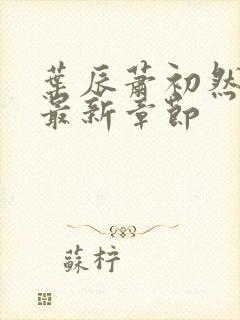 葉辰蕭初然
最新章節
蘇柠